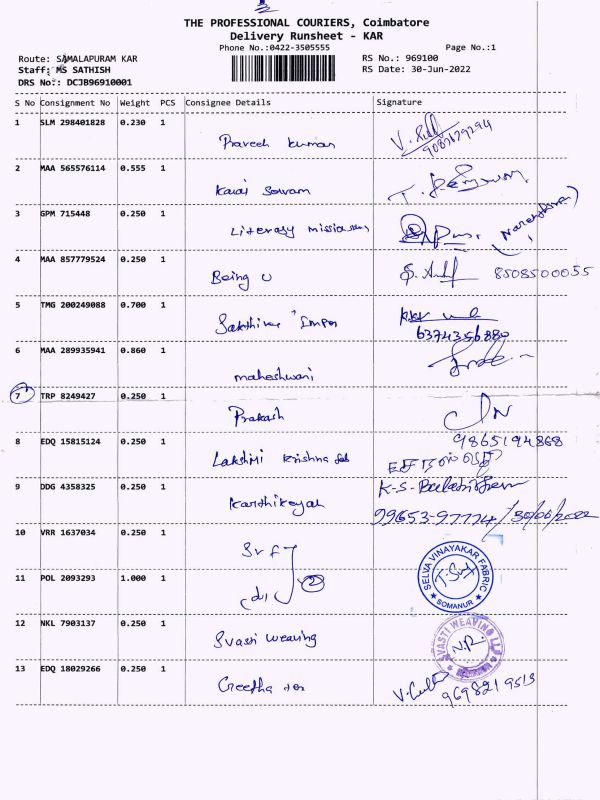 THE PROFESSIONAL COURIERS, Coimbatore
Delivery Runsheet - KAR
Phone No.:0422-3505555
Page No.:1
Route: SAMALAPURAM KAR
RS No.: 969100
Staff: MS SATHISH
RS Date: 30-Jun-2022
DRS No: DCJB96910001
S No Consignment No Weight PCS Consignee Details Signature
1 SLM 298401828 0.230 1
Praveen Kumar
9087679294
2 MAA 565576114 0.555 1
3 GPM 715448 0.250 1
Literary mission
4 MAA 857779524 0.250 1
Being U
8508500055
5 TMG 200249088 0.700 1
6374356880
6 MAA 289935941 0.860 1
maheshwari
7 TRP 8249427 0.250 1
Prakash
8 EDQ 15815124 0.250 1
9865194868
Lakshmi Krishna
9 DDG 4358325 0.250 1
Karthikeyan
99653-97774/30/06/2022
10 VRR 1637034 0.250 1
SVF
11 POL 2093293 1.000 1
2
SELVA VINAYAKAR FABRIC
SOMANUR
12 NKL 7903137 0.250 1
Svasti weaving
VASTI WEAVING LLP
13 EDQ 18029266 0.250 1
Geetha
9698219513